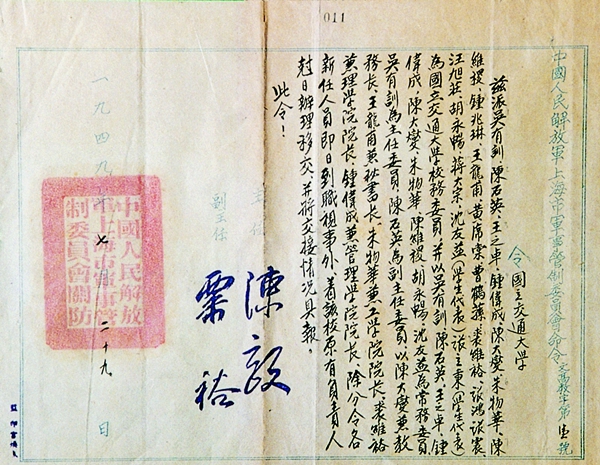 011
中國人民解放軍上海市軍事管制委員會命令 文高教字第 壹 號
令國立交通大學
茲派吳有訓、陳石英、王之卓、鍾偉成、陳大燮、朱物華、陳
維稷、鍾兆琳、王龍甫、黃席棠、曹鶴蓀、裘維裕、張鴻、張震、
汪旭莊、胡永暢、蔣大宗、沈友益（學生代表）、張立秉（學生代表）
為國立交通大學校務委員，并以吳有訓、陳石英、王之卓、鍾
偉成、陳大燮、朱物華、陳維稷、胡永暢、沈友益為常務委員，
吳有訓為主任委員，陳石英為副主任委員，以陳大燮兼教
務長，王龍甫兼秘書長，朱物華兼工學院院長，裘維裕
兼理學院院長，鍾偉成兼管理學院院長，除分令各
新任人員即日到職視事外，着該校原有負責人
尅日辦理移交，并將交接情況具報。
此令！
主任 陳毅
副主任 粟裕
一九四九年七月二十九日
中國人民解放
軍上海市軍事管
制委員會關防